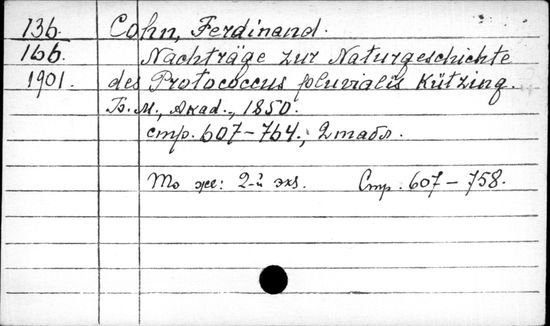 136. Cohn, Ferdinand.
166. Nachträge zur Naturgeschichte
1901. des Protococcus pluvialis Kützing.
Б. М., Akad., 1850.
стр. 607-764., 2 табл.
То же: 2-й экз. Стр. 607-758.